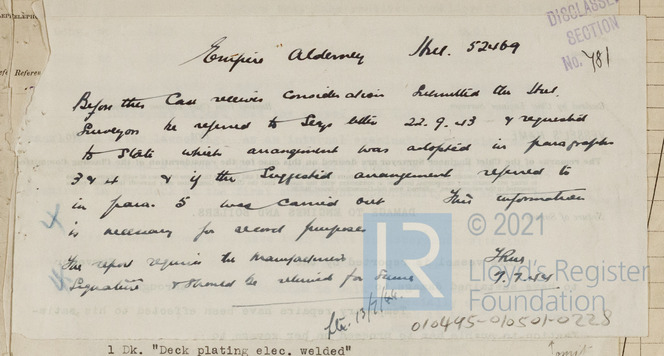 DISCLASSED
SECTION
No. 781
Empire Alderney Hul. 52469
Before this Case receives consideration Submitted the Hul.
Surveyors be referred to Secys letter 22.9.43 & requested
to State which arrangement was adopted in paragraphs
3 & 4 & if the Suggested arrangement referred to
in para. 5 was carried out This information
is necessary for record purposes
The report requires the Manufacturers
Signature & Should be returned for Same
9.7.44
13/7/44
© 2021
LR
Lloyd's Register
Foundation
010495-010501-0228
1 Dk. "Deck plating elec. welded"